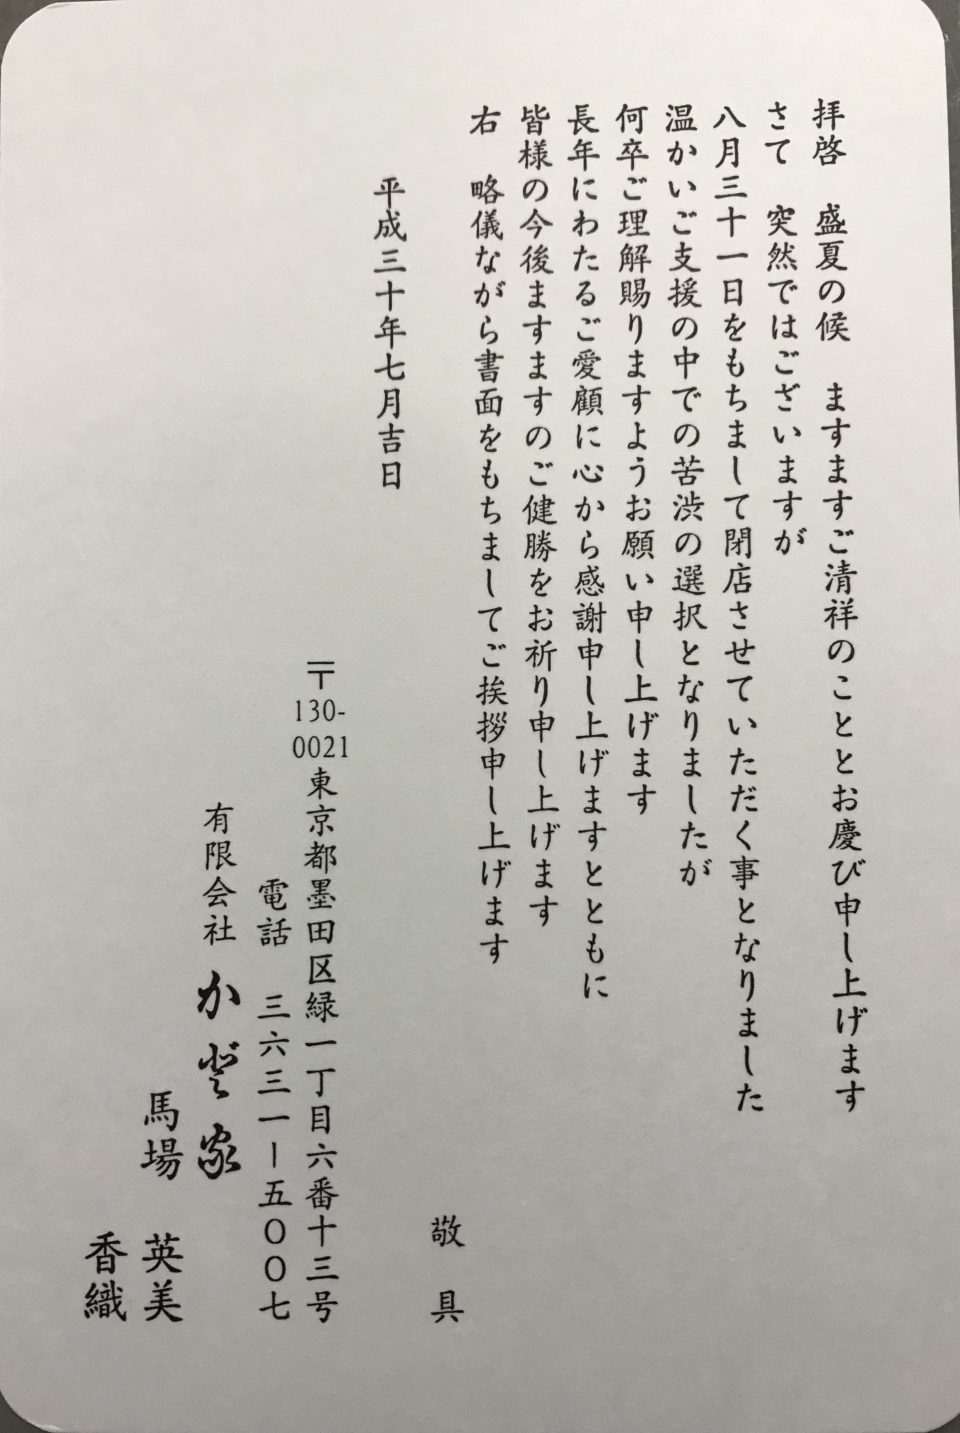 拝啓　盛夏の候　ますますご清祥のこととお慶び申し上げます
さて　突然ではございますが
八月三十一日をもちまして閉店させていただく事となりました
温かいご支援の中での苦渋の選択となりましたが
何卒ご理解賜りますようお願い申し上げます
長年にわたるご愛顧に心から感謝申し上げますとともに
皆様の今後ますますのご健勝をお祈り申し上げます
右　略儀ながら書面をもちましてご挨拶申し上げます
敬具
平成三十年七月吉日
〒130-0021東京都墨田区緑一丁目六番十三号
電話　三六三一ー五〇〇七
有限会社　かど家
馬場　英美
香織